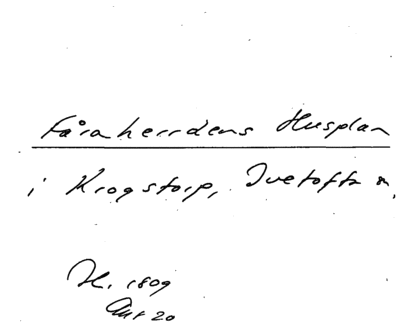 Fåraherrdens Husplan
i Krogstorp, Ivetofta s.
H. 1809
Akt 20